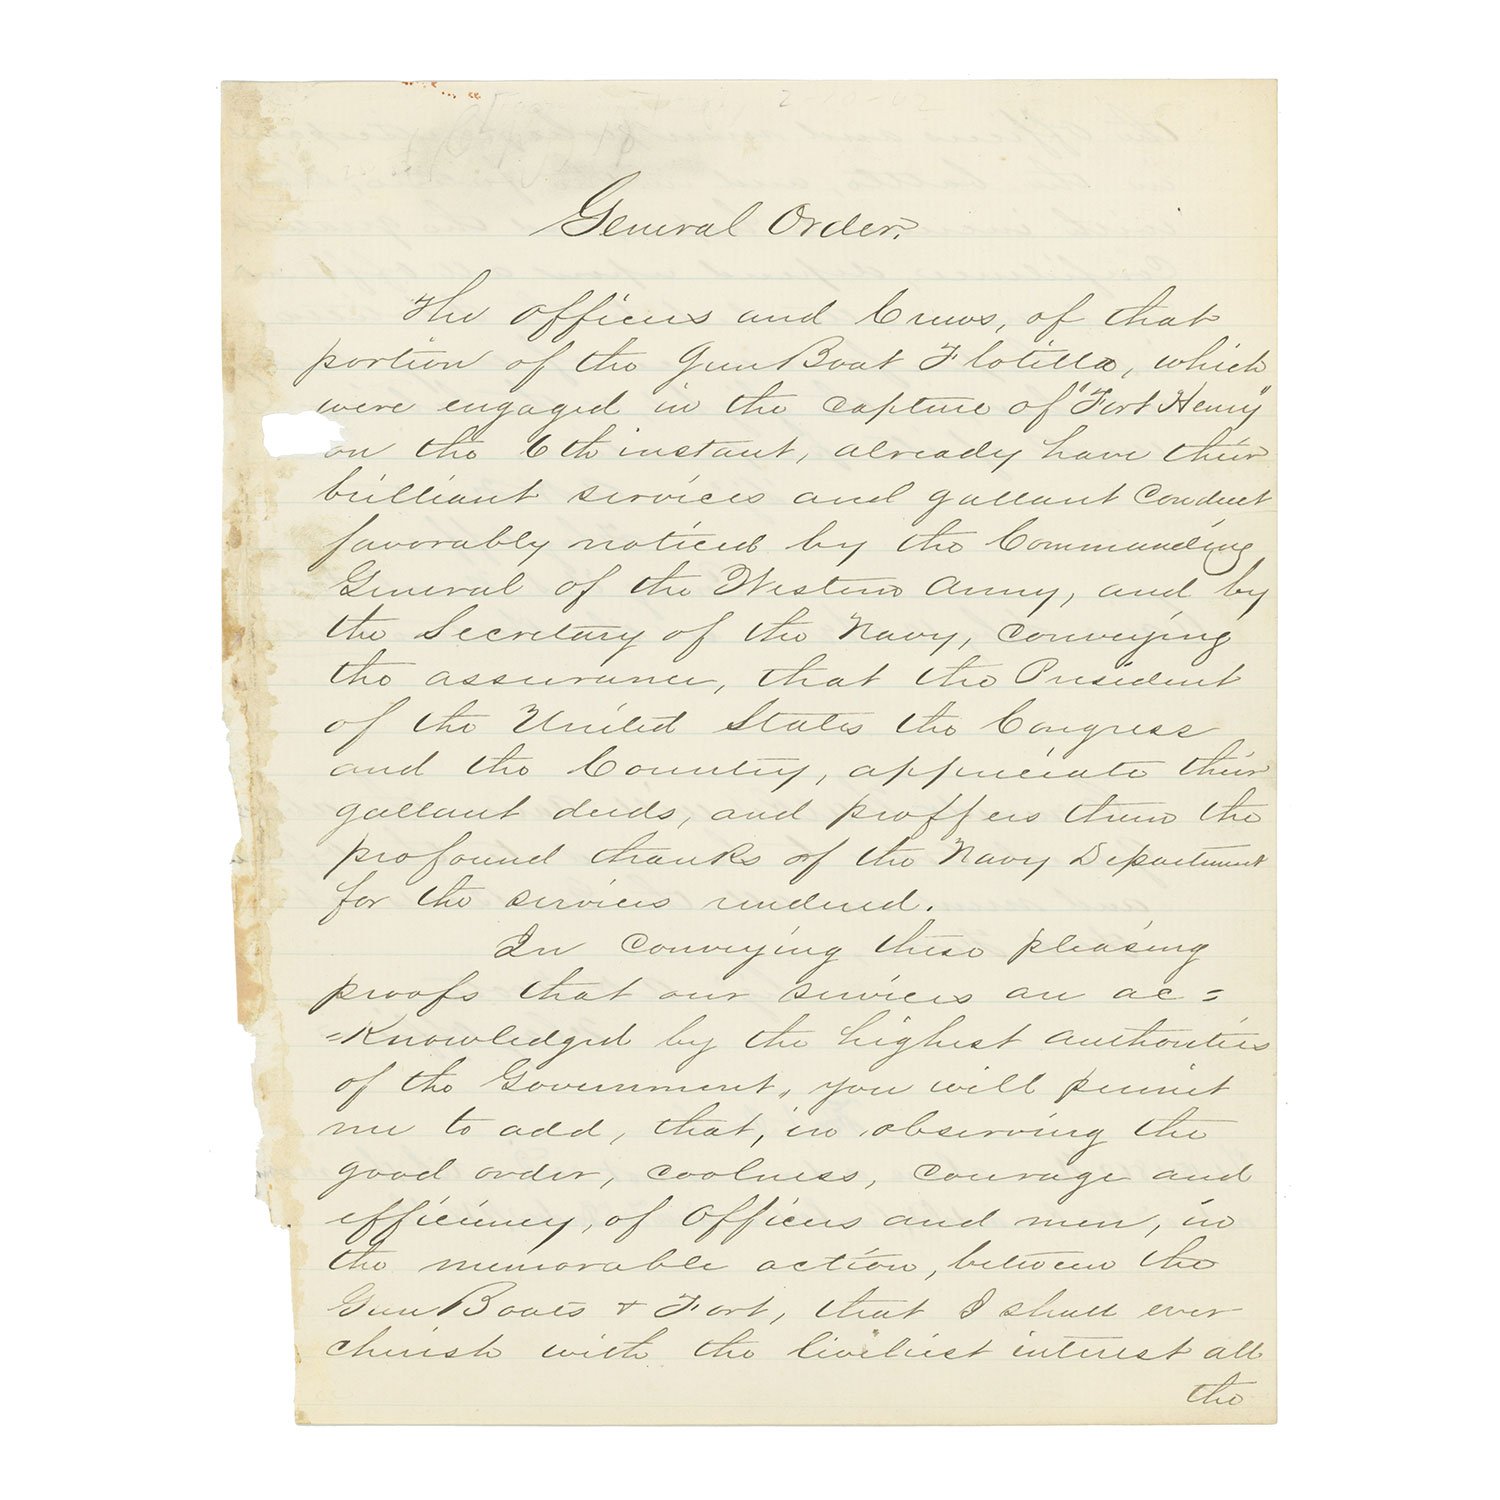 General Order.
The Officers and Crews, of that
portion of the Gun Boat Flotilla, which
were engaged in the capture of "Fort Henry"
on the 6th instant, already have their
brilliant services and gallant Conduct
favorably noticed by the Commanding
General of the Western Army, and by
the Secretary of the Navy, conveying
the assurance, that the President
of the United States the Congress
and the Country, appreciate their
gallant deeds, and proffers them the
profound thanks of the Navy Department
for the services rendered.
In conveying these pleasing
proofs that our services are ac=
=Knowledged by the highest authorities
of the Government, you will permit
me to add, that, in observing the
good order, coolness, courage and
efficiency, of Officers and men, in
the memorable action, between the
Gun Boats & Fort, that I shall ever
cherish with the liveliest interest all
the